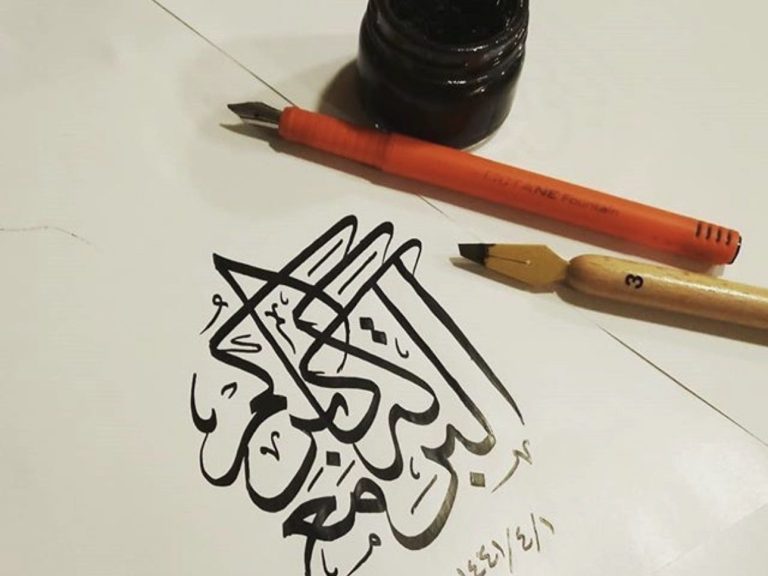 البركة مع أكابركم
١٤٤١/٤/١
Fountain
3